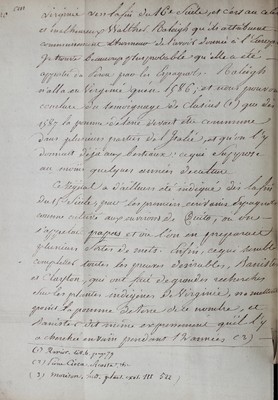 virginie vers la fin du 16e siècle, et c'est au célèbre
et malheureux Walther Raleigh qu'ils attribuent
communément l'honneur de l'avoir donnée à l'Europe.
Je trouve beaucoup plus probable qu'elle a été
apportée du Pérou par les Espagnols. Raleigh
n'alla en Virginie qu'en 1586, et nous pouvons
conclure du témoignage de Clusius (1) que dès
1587 la pomme de terre devait être commune
dans plusieurs parties de l'Italie, et qu'on l'y
donnait déjà aux bestiaux: ce qui suppose
au moins quelques années de culture.
Ce végétal a d'ailleurs été indiqué dès la fin
du 16e siècle, par les premiers écrivains Espagnols
comme cultivé aux environs de Quito, où on
s'appelait papas et où l'on en préparait
plusieurs sortes de mets. Enfin, ce qui semble
compléter toutes les preuves désirables, Banister
et Clayton, qui ont fait de grandes recherches
sur les plantes indigènes de Virginie, ne mettent
point la pomme de terre de ce nombre, et
Banister dit même expressément qu'il l'y
a cherchée en vain pendant 12 années (3) —
(1) Rarior. lib. 4. page 79
(2) Pierre Cieca
(3) Morison, hist. plant. ext. III 522